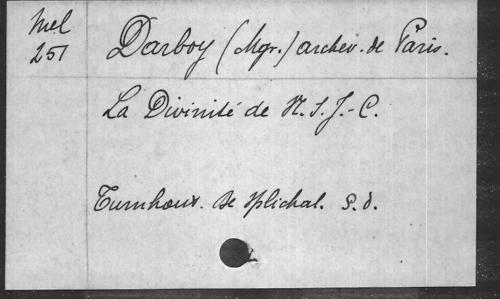 Mel
251
Darboy (Mgr.) archev. de Paris.
La Divinité de N. S. J.-C.
Turnhout. Splichal. S. d.